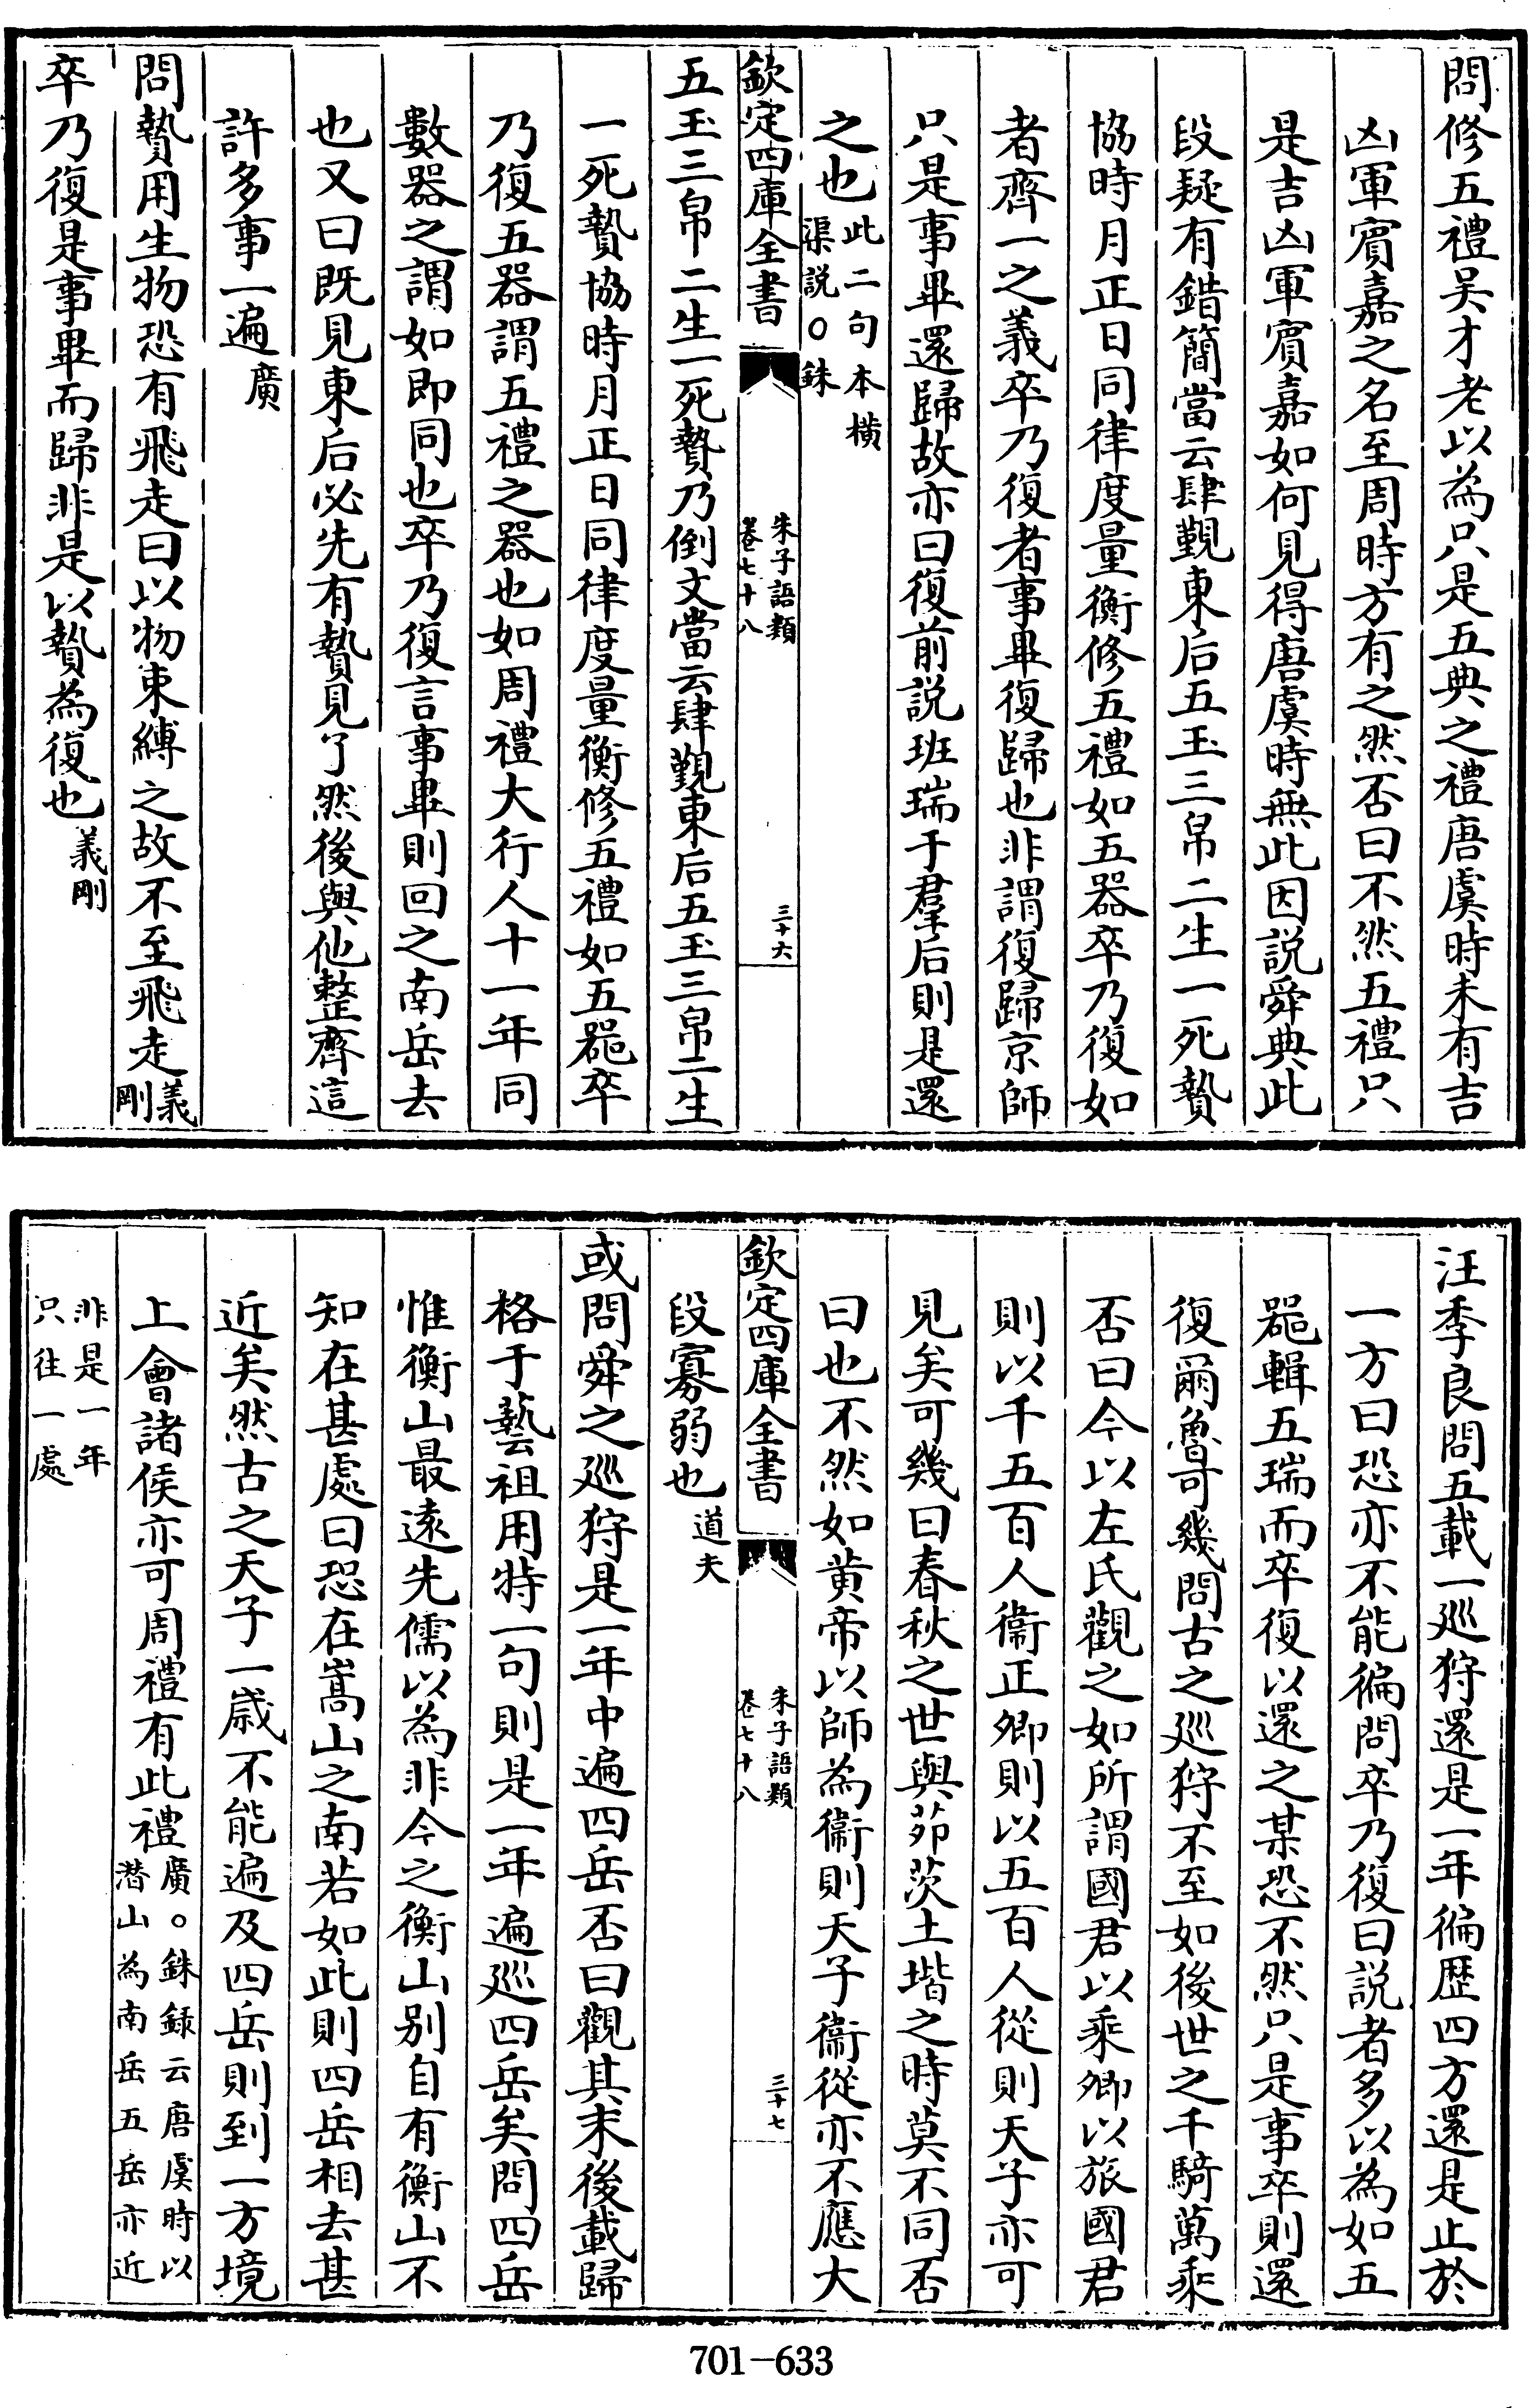 問修五禮吴才老以為只是五典之禮唐虞時未有吉
凶軍賓嘉之名至周時方有之然否曰不然五禮只
是吉凶軍賓嘉如何見得唐虞時無此因説舜典此
段疑有錯簡當云肆覲東后五玉三帛二生一死贄
協時月正日同律度量衡修五禮如五器卒乃復如
者齊一之義卒乃復者事畢復歸也非謂復歸京師
只是事畢還歸故亦曰復前説班瑞于羣后則是還
之也此二句本横
渠説○銖
欽定四庫全書
朱子語類
卷七十八
三十六
五玉三帛二生一死贄乃倒文當云肆覲東后五玉三帛二生
一死贄協時月正日同律度量衡修五禮如五器卒
乃復五器謂五禮之器也如周禮大行人十一年同
數器之謂如即同也卒乃復言事畢則回之南岳去
也又曰既見東后必先有贄見了然後與他整齊這
許多事一遍廣
問贄用生物恐有飛走曰以物束縛之故不至飛走義
剛
卒乃復是事畢而歸非是以贄為復也義剛
汪季良問五載一巡狩還是一年徧歴四方還是止於
一方曰恐亦不能徧問卒乃復曰説者多以為如五
器輯五瑞而卒復以還之某恐不然只是事卒則還
復爾魯可幾問古之巡狩不至如後世之千騎萬乘
否曰今以左氏觀之如所謂國君以乘卿以旅國君
則以千五百人衞正卿則以五百人從則天子亦可
見矣可幾曰春秋之世與茆茨土堦之時莫不同否
曰也不然如黄帝以師為衞則天子衞從亦不應大
欽定四庫全書
朱子語類
卷七十八
三十七
段寡弱也道夫
或問舜之巡狩是一年中遍四岳否曰觀其末後載歸
格于藝祖用特一句則是一年遍巡四岳矣問四岳
惟衡山最遠先儒以為非今之衡山别自有衡山不
知在甚處曰恐在嵩山之南若如此則四岳相去甚
近矣然古之天子一嵗不能遍及四岳則到一方境
上會諸侯亦可周禮有此禮廣。銖録云唐虞時以
潛山為南岳五岳亦近
非是一年
只往一處
701-633